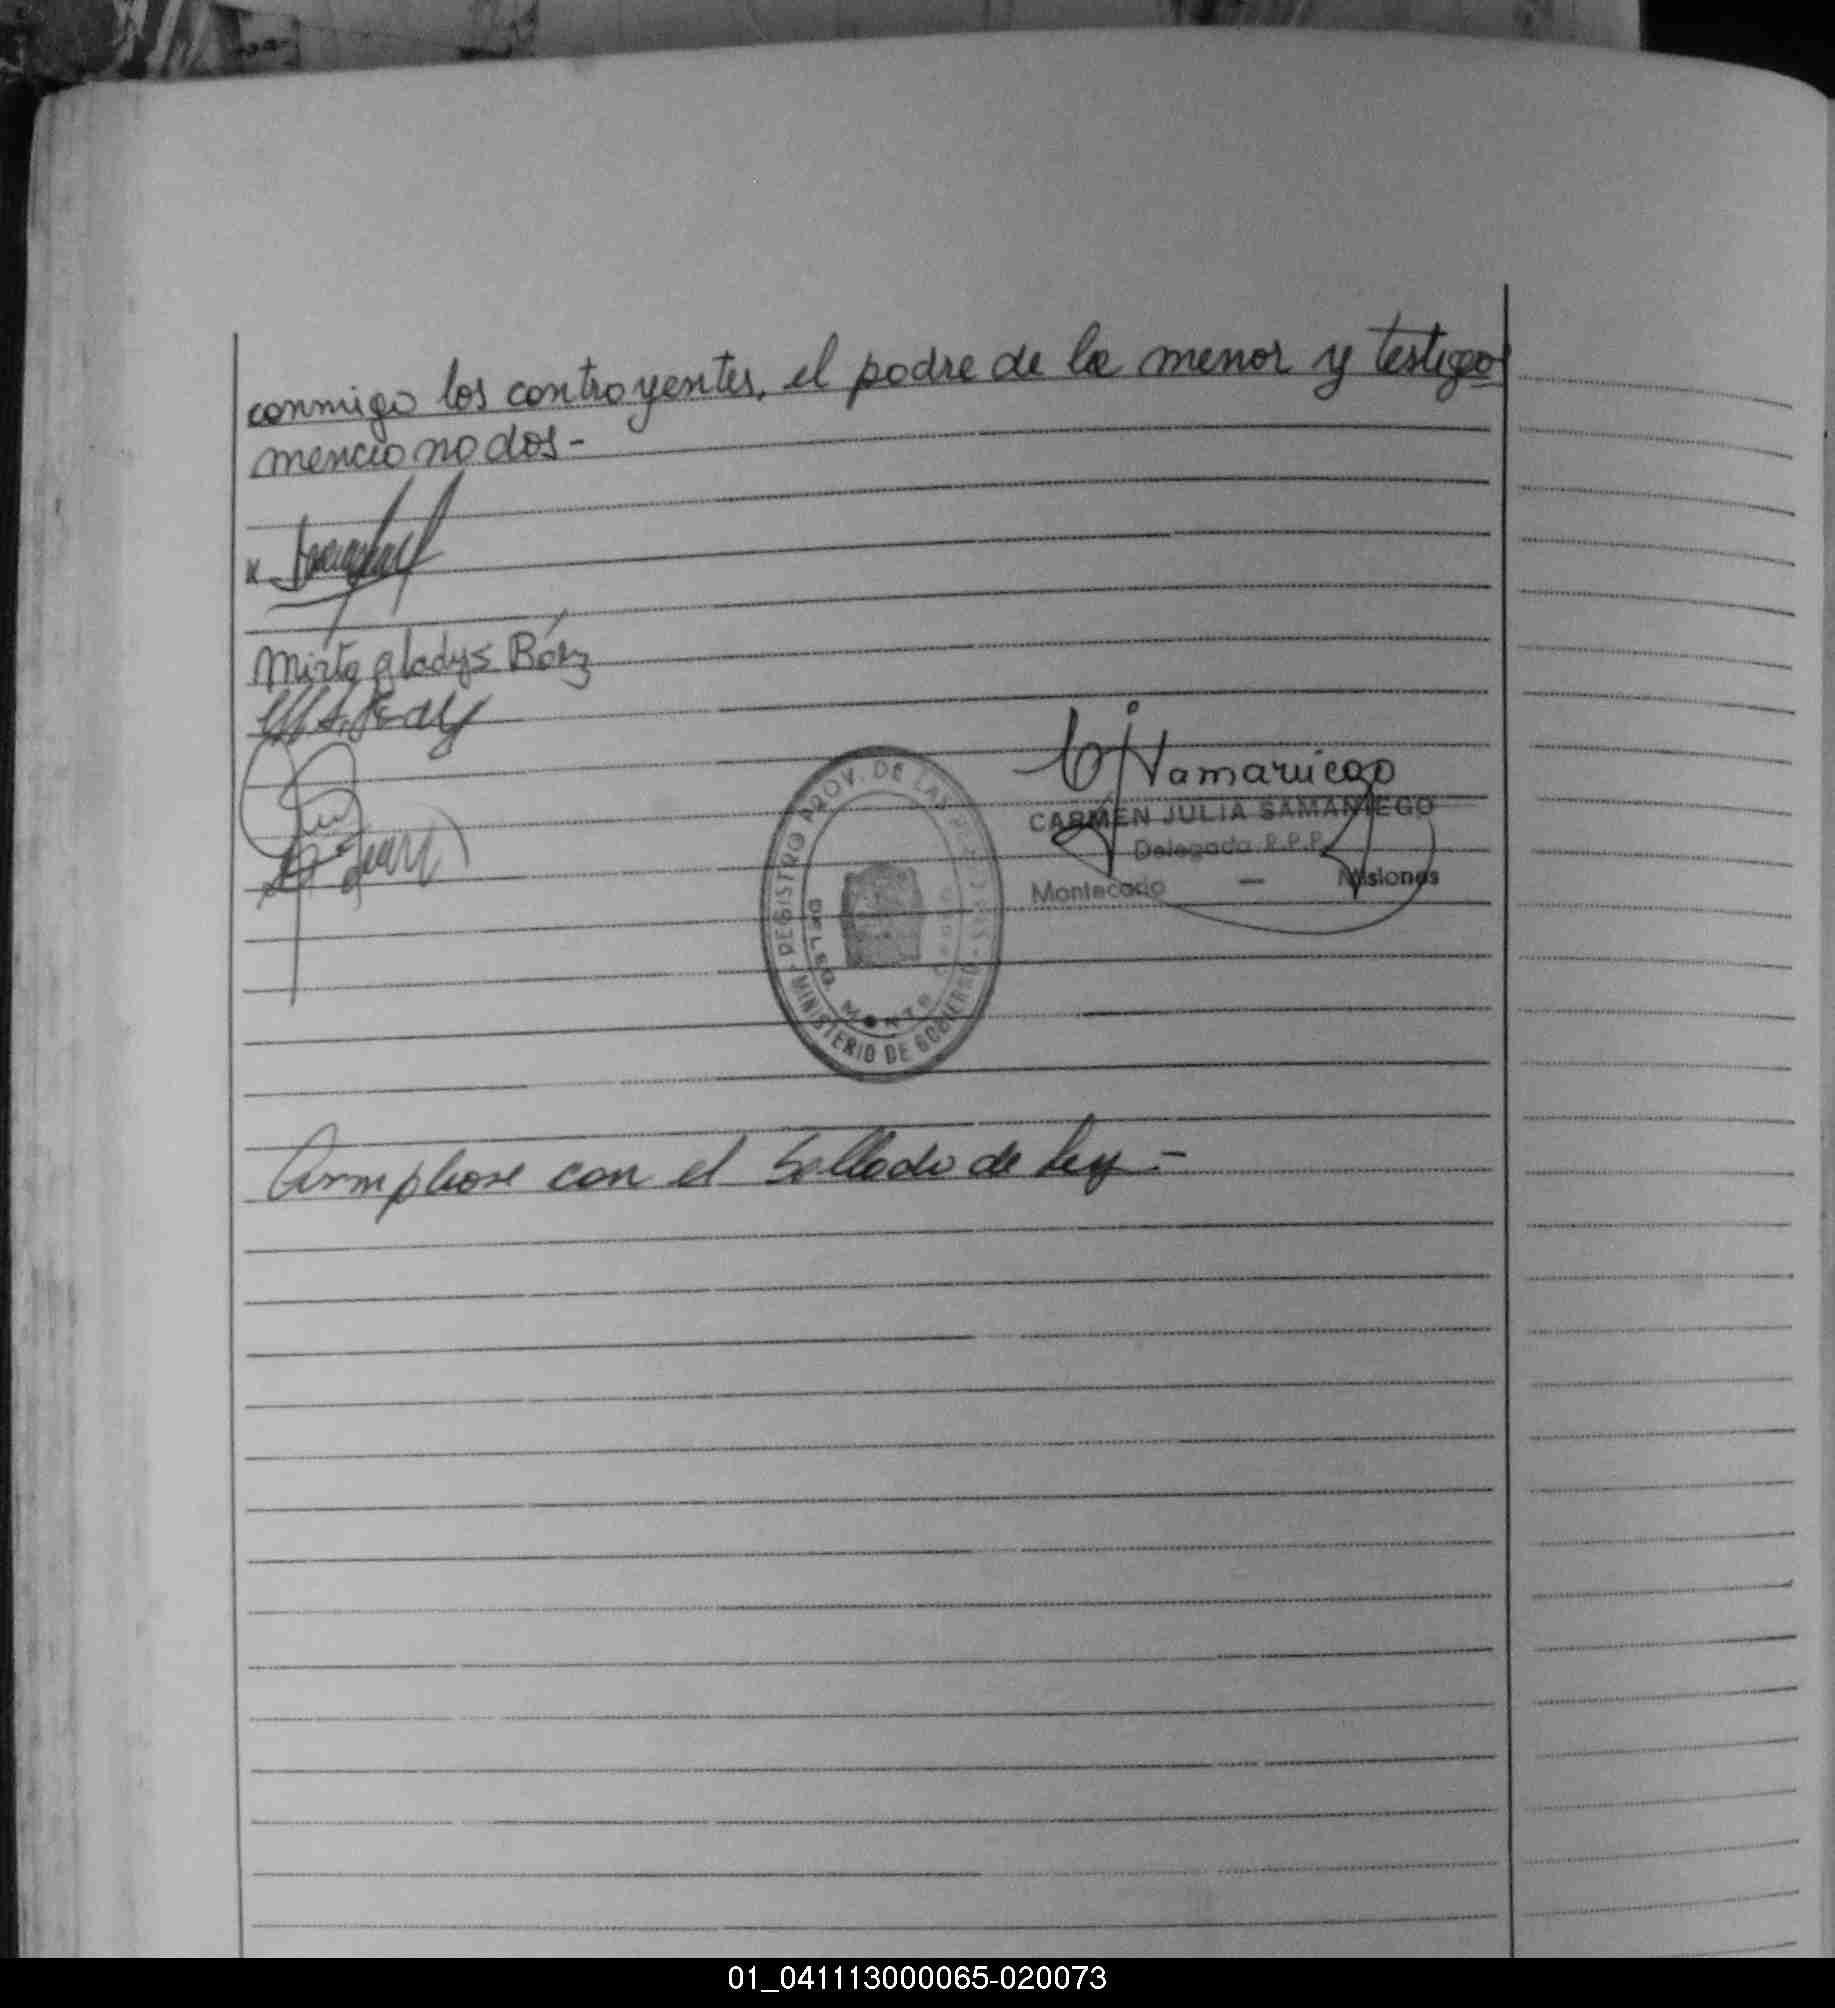 conmigo los contrayentes, el padre de la menor y testigos
mencionados-
x
Mirta gladys Báez
CJSamaniego
CARMEN JULIA SAMANIEGO
Delegada R.P.P.
Montecarlo — Misiones
REGISTRO PROV. DE LAS PERSONAS
MINISTERIO DE GOBIERNO
DELEG. MONTECARLO
Cúmplase con el Sellado de ley-
01_041113000065-020073